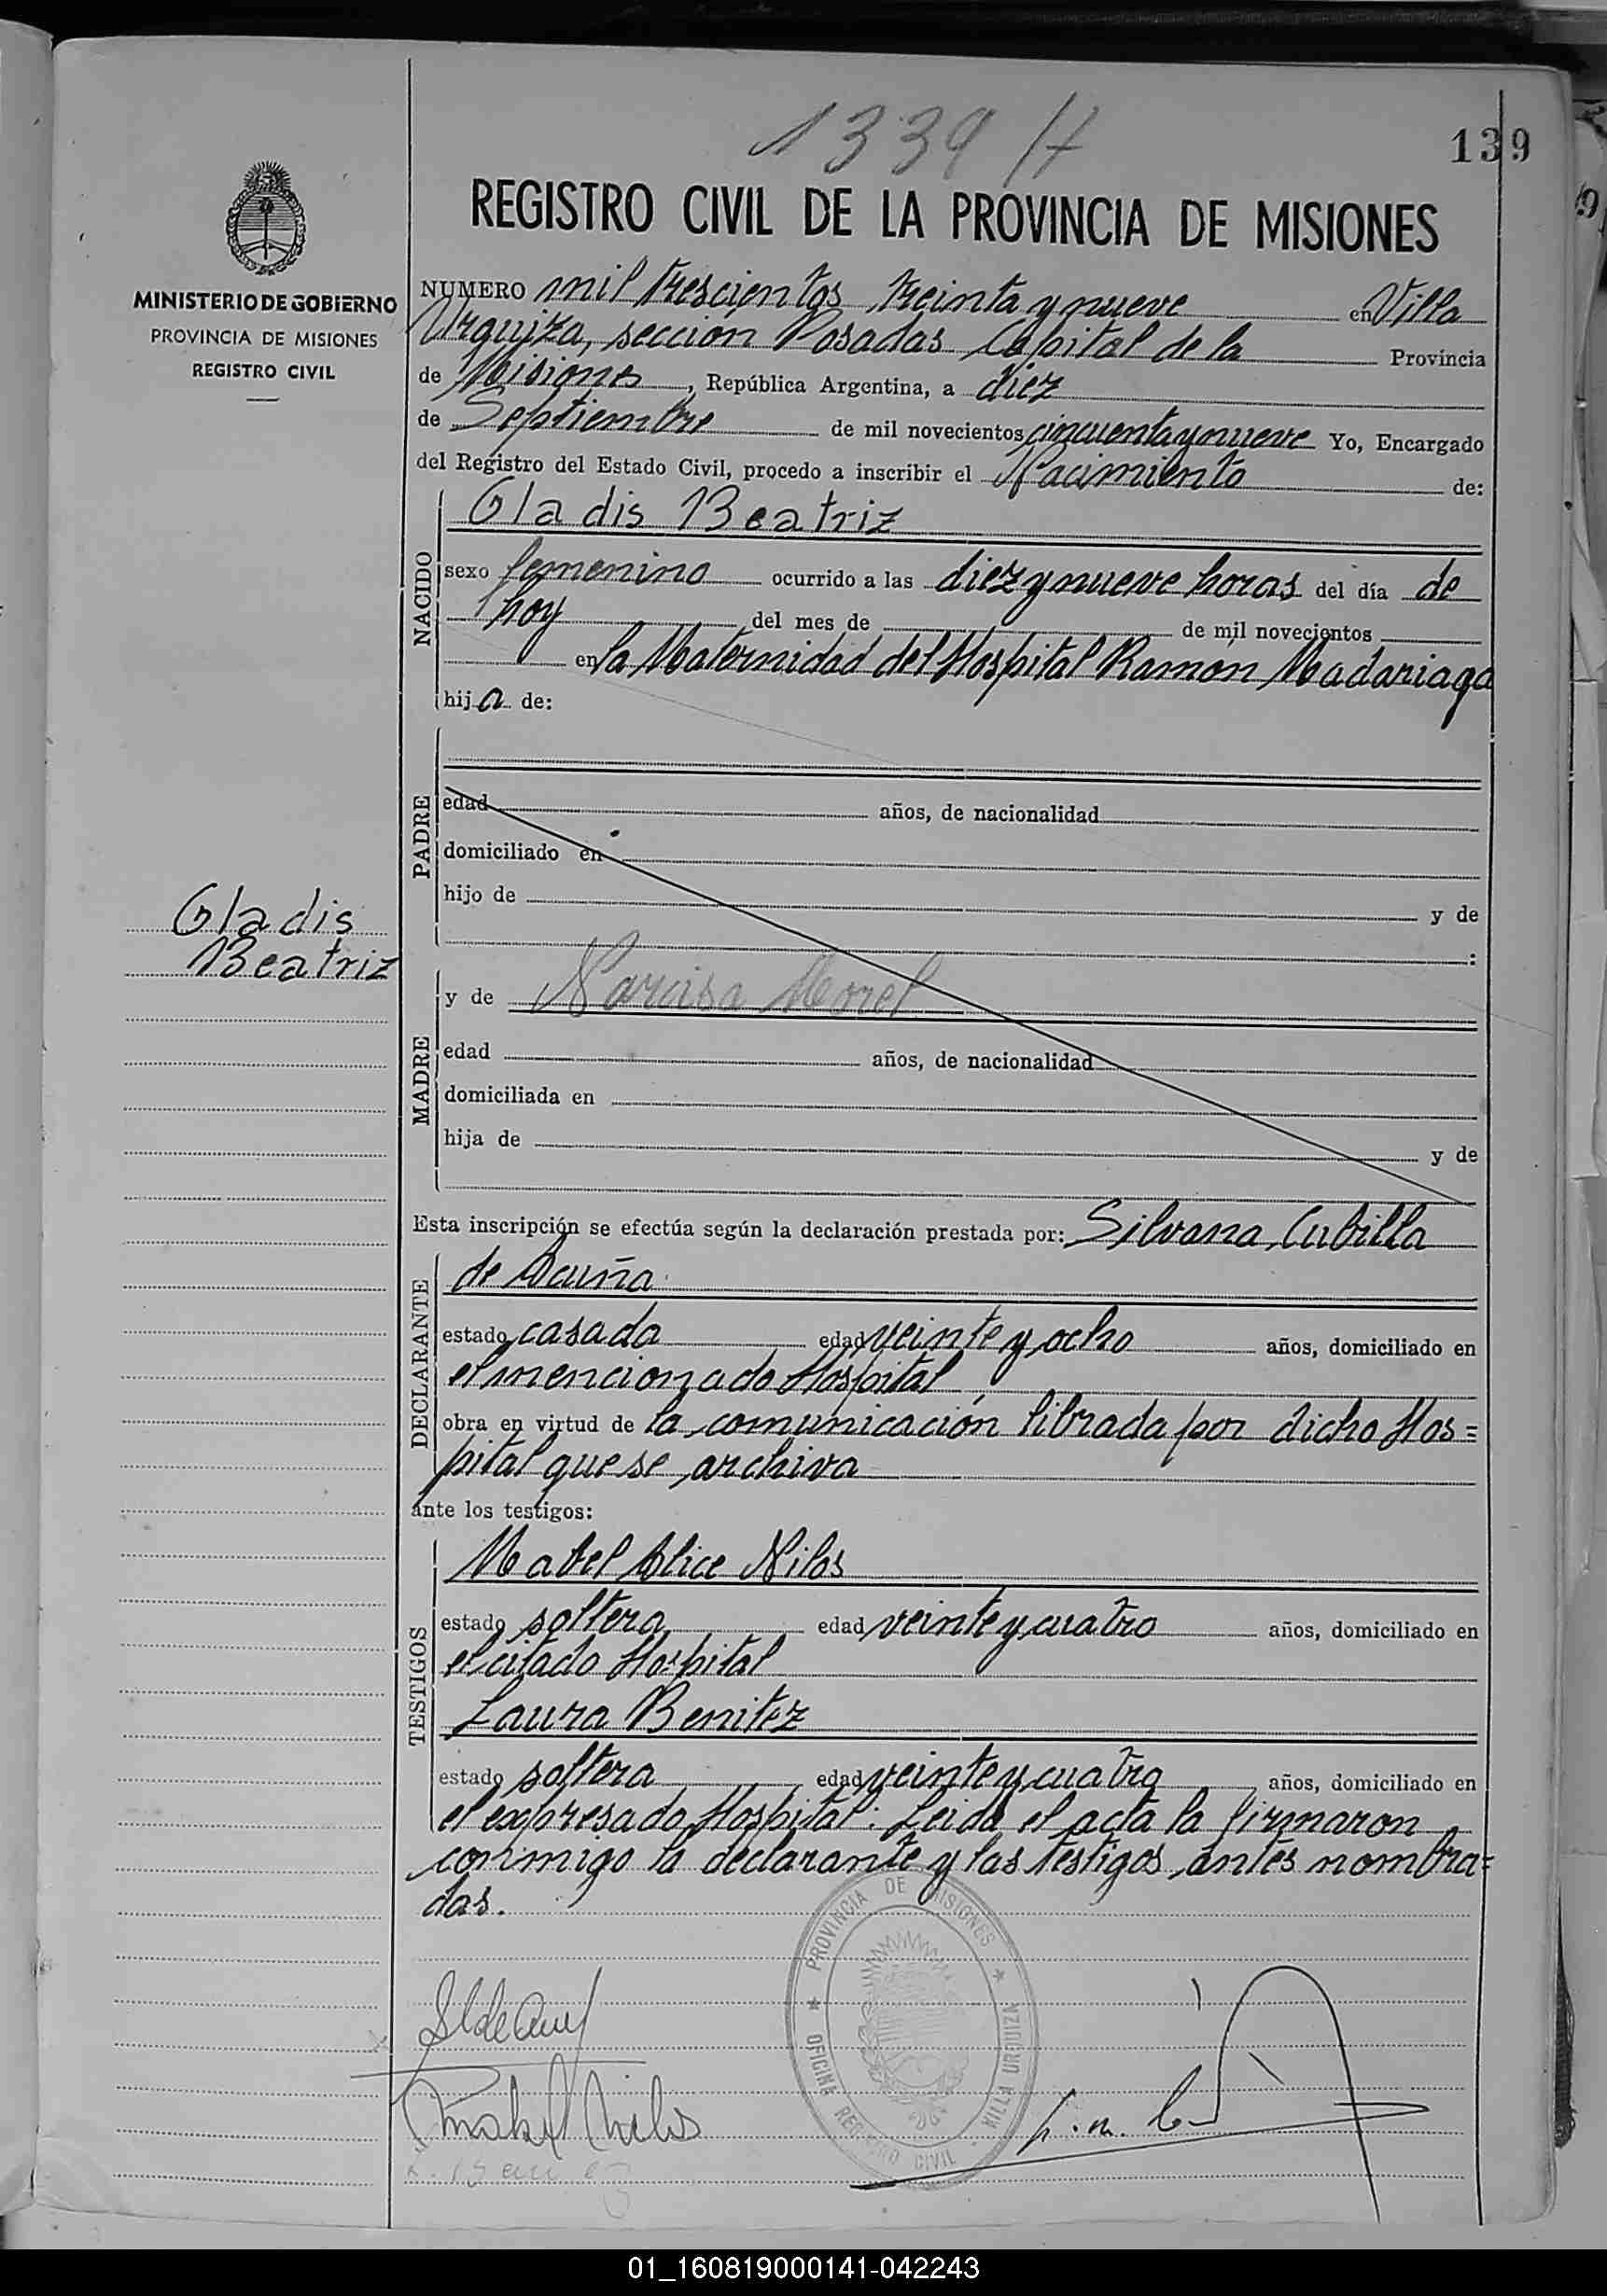 1339 H
139
REGISTRO CIVIL DE LA PROVINCIA DE MISIONES
MINISTERIO DE GOBIERNO
PROVINCIA DE MISIONES
REGISTRO CIVIL
NUMERO mil trescientos treinta y nueve en Villa
Urquiza, sección Posadas Capital de la Provincia
de Misiones, República Argentina, a diez
de Septiembre de mil novecientos cincuenta y nueve Yo, Encargado
del Registro del Estado Civil, procedo a inscribir el Nacimiento de:
NACIDO
Gladis Beatriz
sexo femenino ocurrido a las diez y nueve horas del día de
hoy del mes de de mil novecientos
en la Maternidad del Hospital Ramón Madariaga
hija de:
PADRE
edad años, de nacionalidad
domiciliado en
hijo de y de
:
Gladis
Beatriz
MADRE
y de Narcisa Morel
edad años, de nacionalidad
domiciliada en
hija de y de
Esta inscripción se efectúa según la declaración prestada por: Silvana Cubilla
DECLARANTE
de Acuña
estado casada edad veinte y ocho años, domiciliado en
el mencionado Hospital
obra en virtud de la comunicación librada por dicho Hos=
pital que se archiva
ante los testigos:
TESTIGOS
Mabel Alice Nilos
estado soltera edad veinte y cuatro años, domiciliado en
el citado Hospital
Laura Benitez
estado soltera edad veinte y cuatro años, domiciliado en
el expresado Hospital. Leida el acta la firmaron
conmigo la declarante y las testigos antes nombra=
das.
PROVINCIA DE MISIONES
OFICINA REGISTRO CIVIL VILLA URQUIZA
Mabel Nilos
01_160819000141-042243